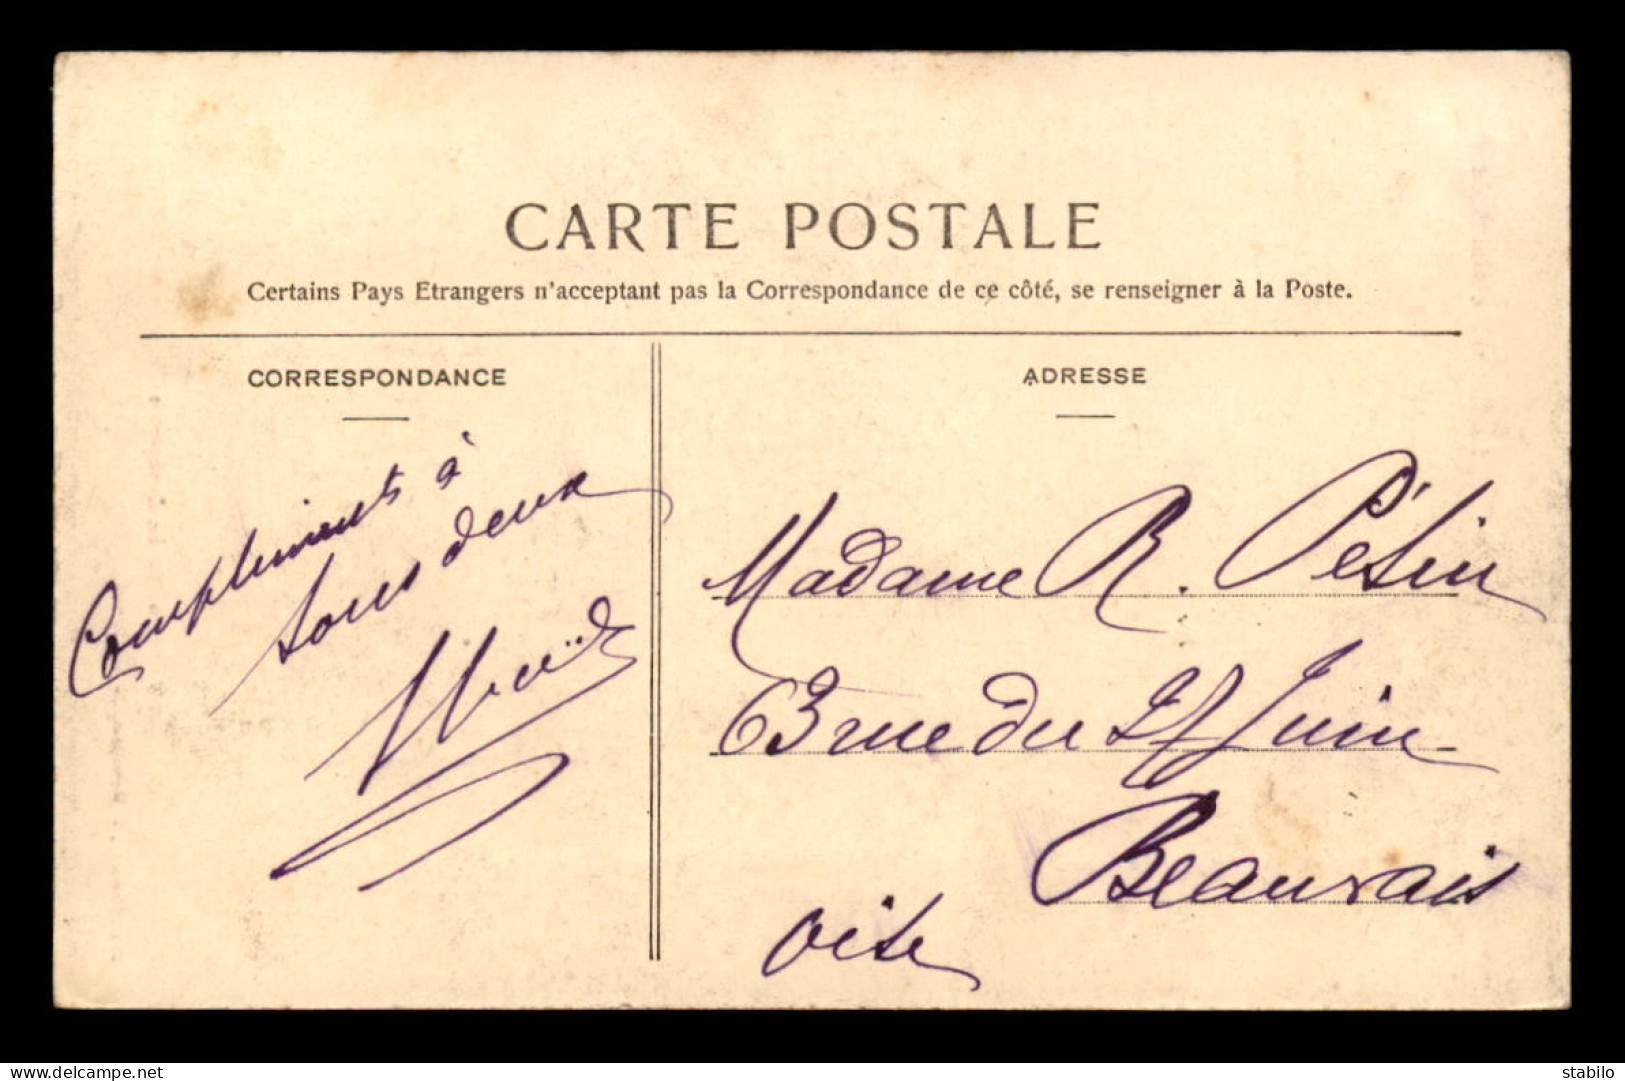 CARTE POSTALE
Certains Pays Etrangers n'acceptant pas la Correspondance de ce côté, se renseigner à la Poste.
CORRESPONDANCE
Compliments à
tous deux
ADRESSE
Madame R. Pésin
63 rue du 27 Juin
Beauvais
Oise
Delcampe.net
stabilo